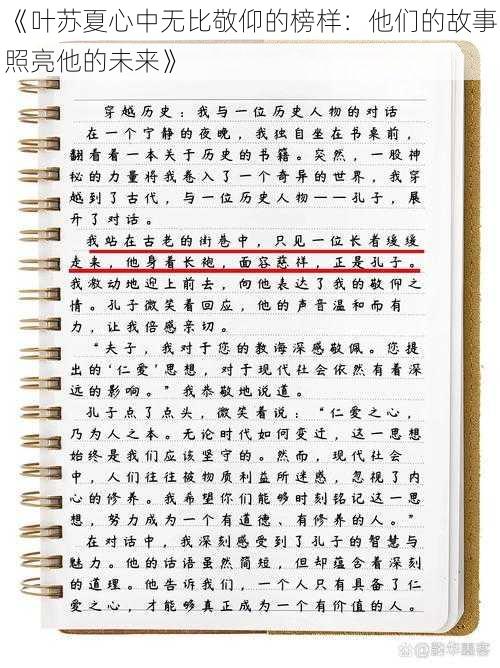 《叶苏夏心中无比敬仰的榜样：他们的故事
照亮他的未来》
穿越历史：我与一位历史人物的对话
在一个宁静的夜晚，我独自坐在书桌前，
翻看着一本关于历史的书籍。突然，一股神
秘的力量将我卷入了一个奇异的世界，我穿
越到了古代，与一位历史人物——孔子，展
开了对话。
我站在古老的街巷中，只见一位长者缓缓
走来，他身着长袍，面容慈祥，正是孔子。
我激动地迎上前去，向他表达了我的敬仰之
情。孔子微笑着回应，他的声音温和而有
力，让我倍感亲切。
“夫子，我对于您的教诲深感敬佩。您提
出的‘仁爱’思想，对于现代社会依然有着深
远的影响。”我恭敬地说道。
孔子点了点头，微笑着说：“仁爱之心，
乃为人之本。无论时代如何变迁，这一思想
始终是我们应该坚守的。然而，现代社会
中，人们往往被物质利益所迷惑，忽视了内
心的修养。我希望你们能够时刻铭记这一思
想，努力成为一个有道德、有修养的人。”
在对话中，我深刻感受到了孔子的智慧与
魅力。他的话语虽然简短，但却蕴含着深刻
的道理。他告诉我们，一个人只有具备了仁
爱之心，才能够真正成为一个有价值的人。